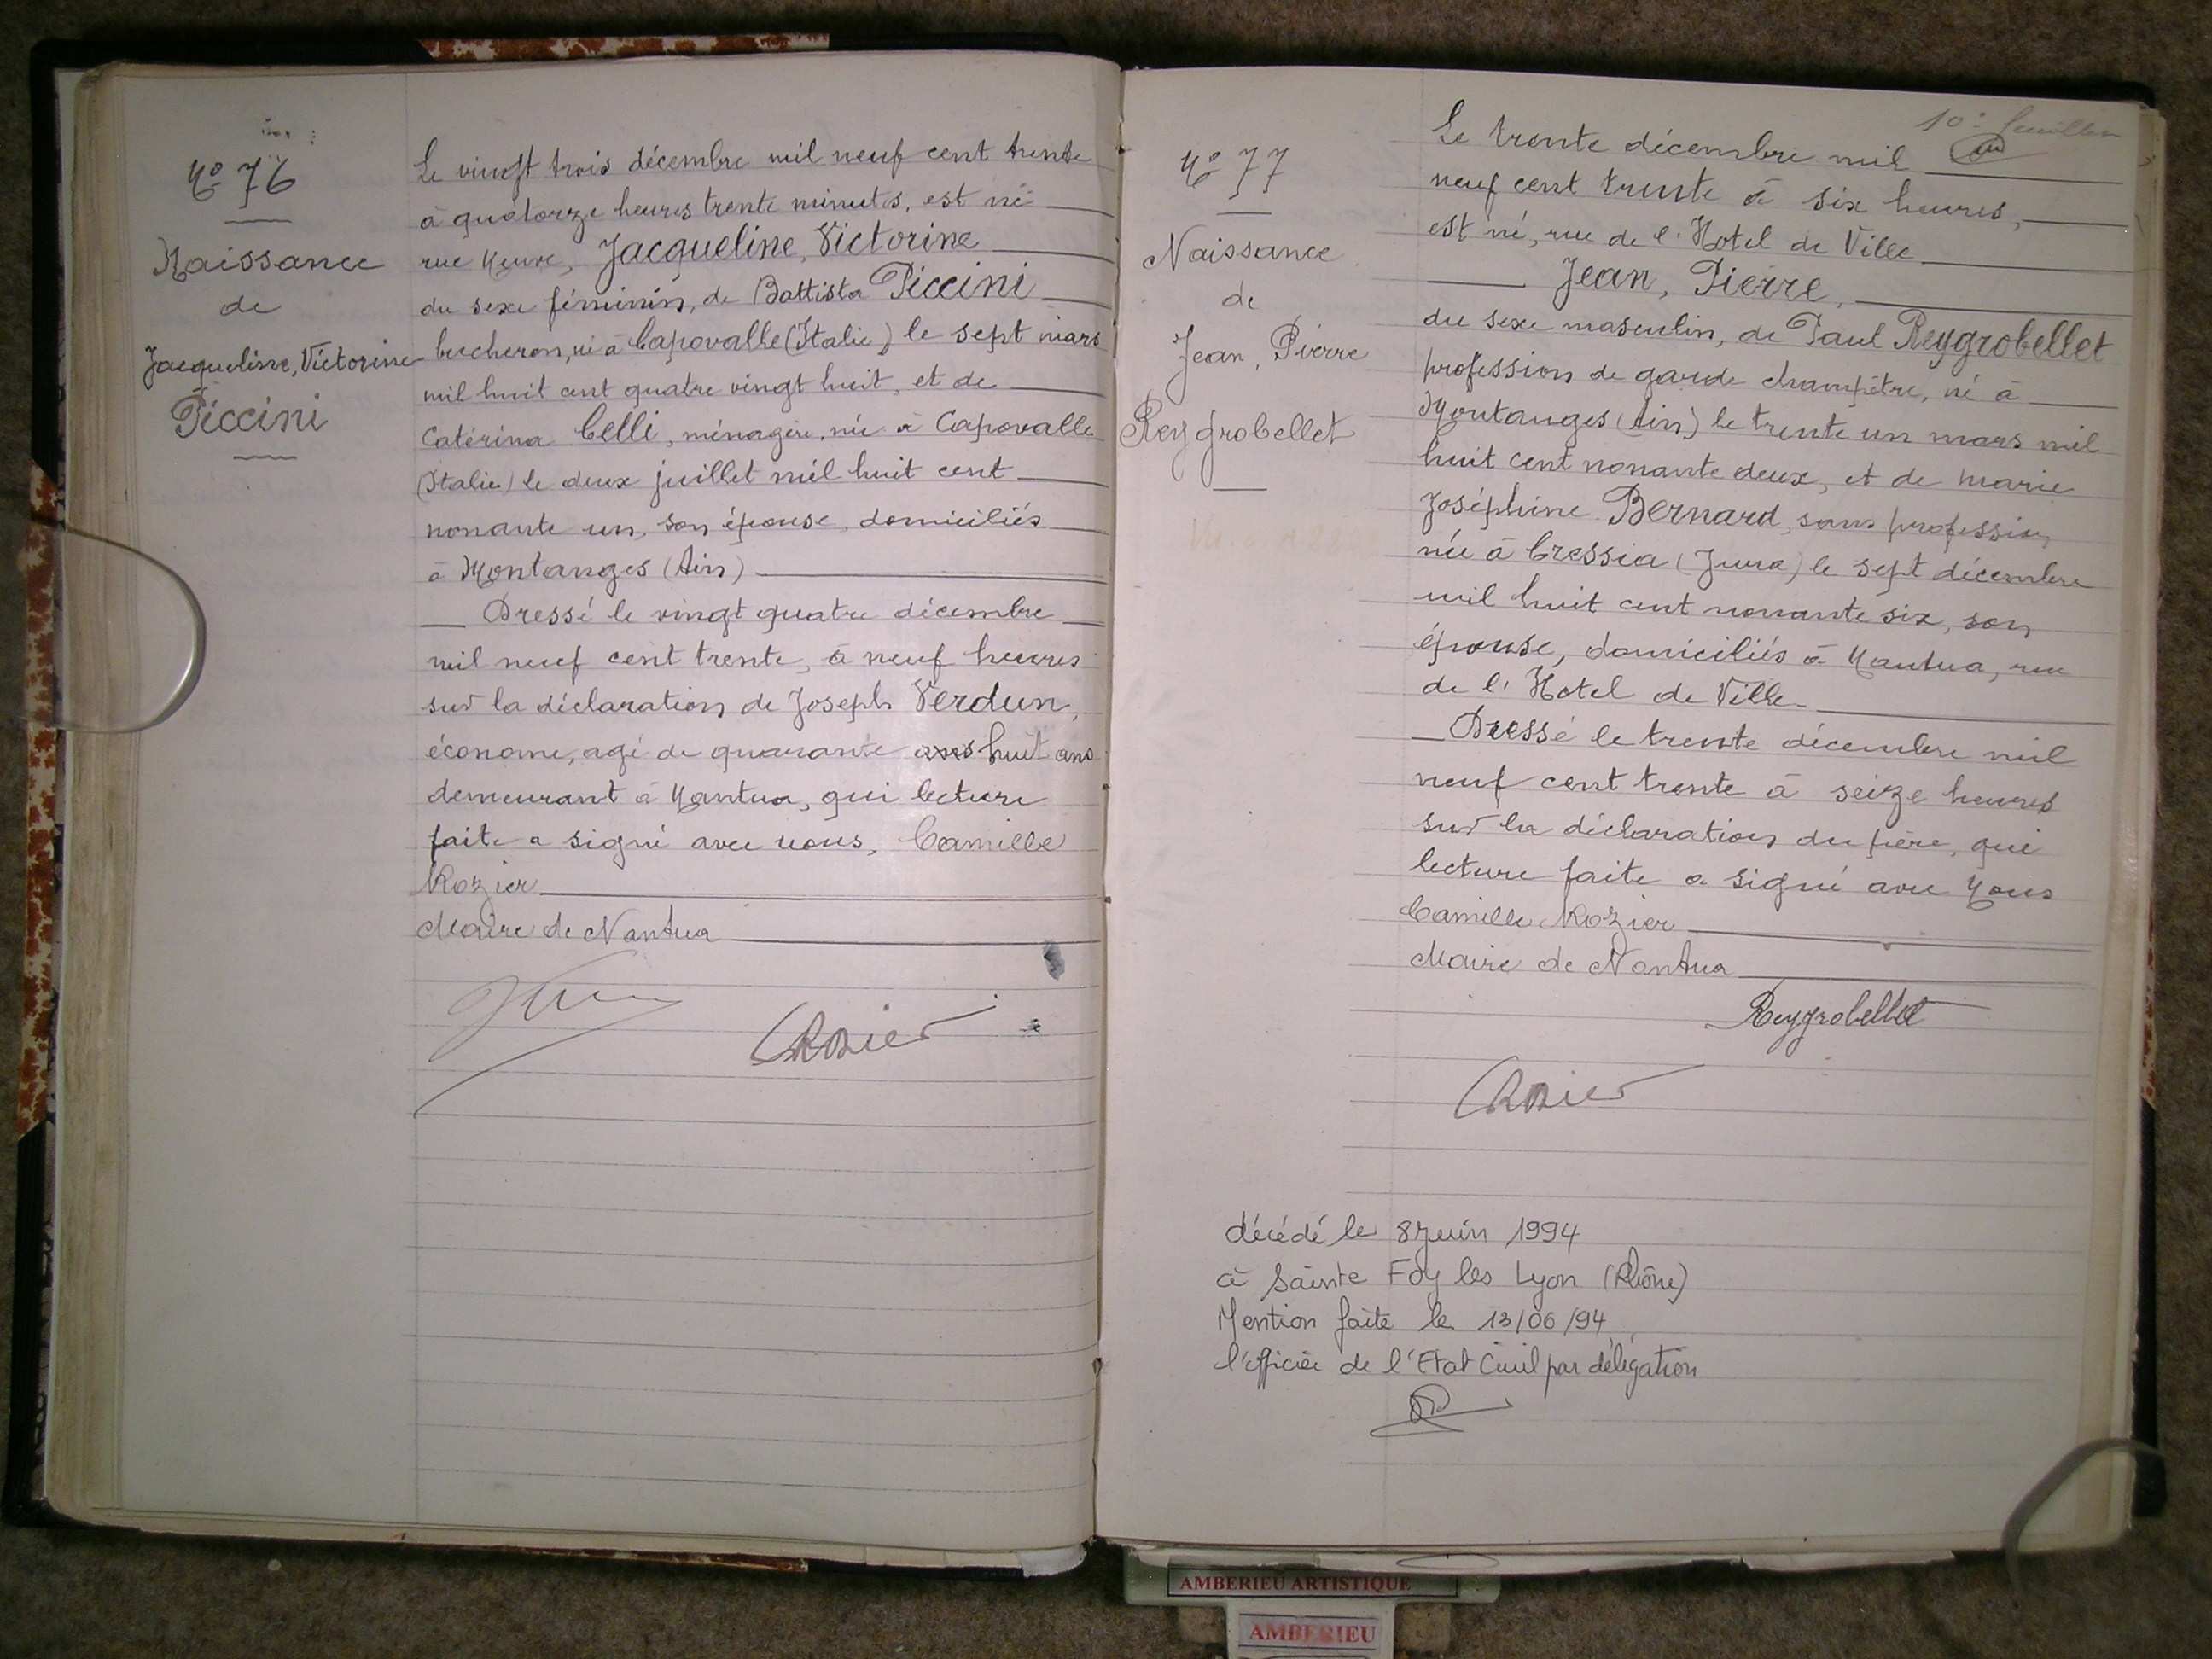 Nº 76
Naissance
de
Jacqueline, Victorine
Piccini
Le vingt trois décembre mil neuf cent trente
à quatorze heures trente minutes, est né
rue Neuve, Jacqueline, Victorine
du sexe féminin, de Battista Piccini
bucheron, né à Capovalle (Italie) le sept mars
mil huit cent quatre vingt huit, et de
Catérina Celli, ménagère, née à Capovalle
(Italie) le deux juillet mil huit cent
nonante un, son épouse, domiciliés
à Montanges (Ain)
Dressé le vingt quatre décembre
mil neuf cent trente, à neuf heures
sur la déclaration de Joseph Verdun,
économe, agé de quarante ans huit ans
demeurant à Nantua, qui lecture
faite a signé avec nous, Camille
Rozier
Maire de Nantua
CRozier
10e feuillet
Nº 77
Naissance
de
Jean, Pierre
Reygrobellet
Le trente décembre mil
neuf cent trente à six heures,
est né, rue de l'Hotel de Ville
Jean, Pierre,
du sexe masculin, de Paul Reygrobellet
profession de garde champêtre, né à
Montanges (Ain) le trente un mars mil
huit cent nonante deux, et de Marie
Joséphine Bernard, sans profession
née à Cressia (Jura) le sept décembre
mil huit cent nonante six, son
épouse, domiciliés à Nantua, rue
de l'Hotel de Ville
Dressé le trente décembre mil
neuf cent trente à seize heures
sur la déclaration du père, qui
lecture faite a signé avec Nous
Camille Rozier
Maire de Nantua
Reygrobellet
CRozier
décédé le 8 Juin 1994
à Sainte Foy les Lyon (Rhône)
Mention faite le 13/06/94
l'officier de l'Etat Civil par délégation
AMBERIEU ARTISTIQUE
AMBERIEU